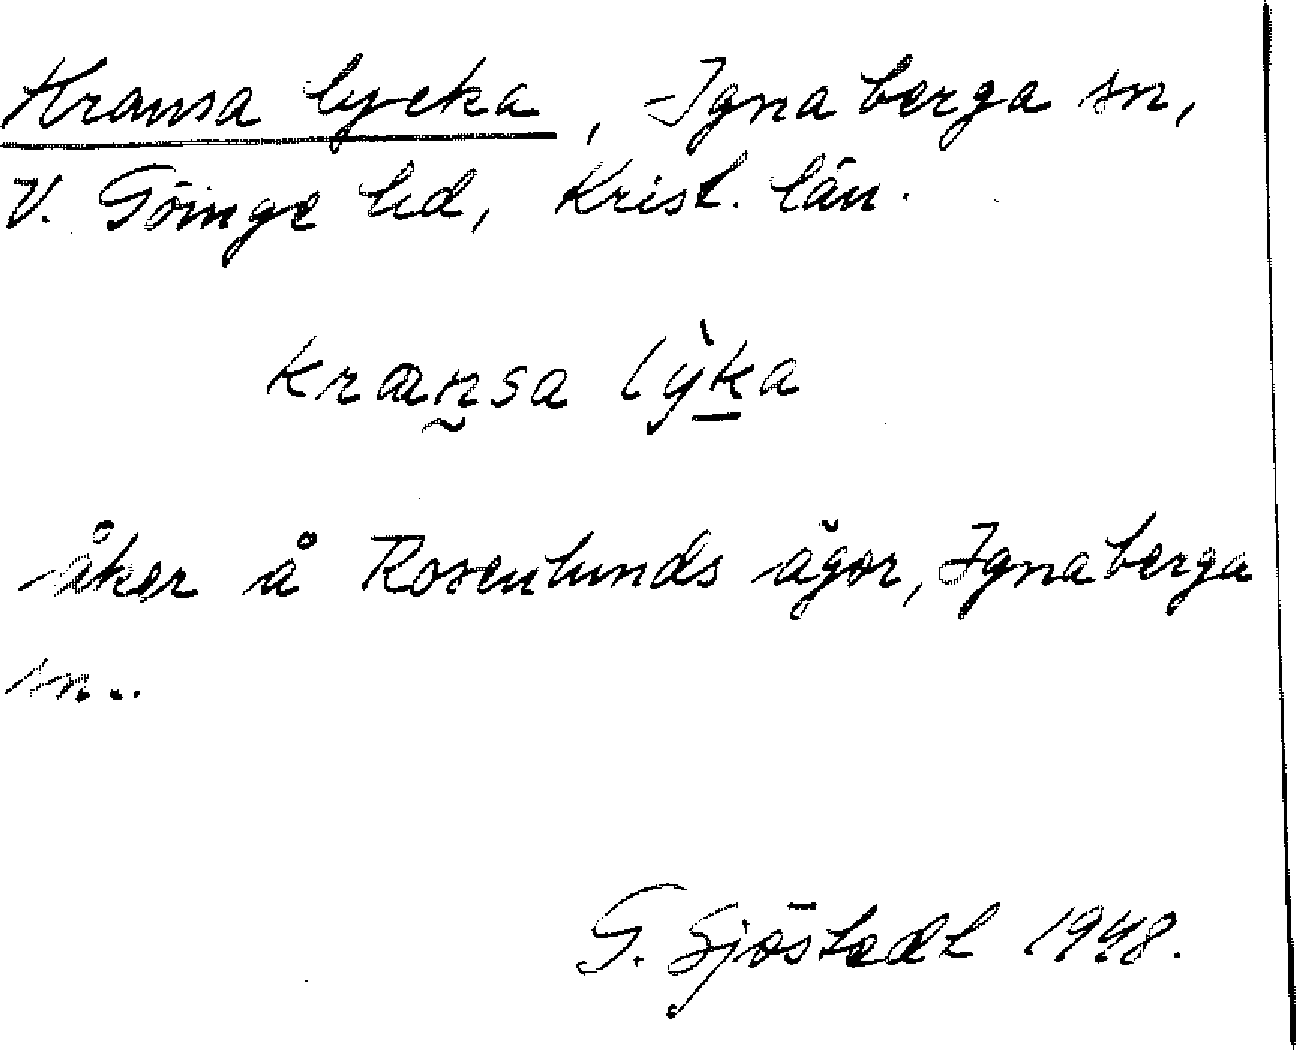 Kransa lycka, Ignaberga sn,
V. Göinge hd, Krist. län.
kransa lỳka
åker å Rosenlunds ägor, Ignaberga
sn..
G. Sjöstedt 1948.